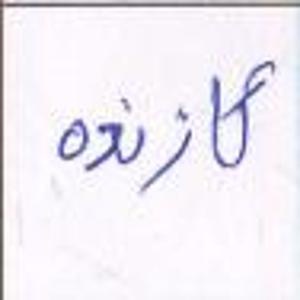 سازنده